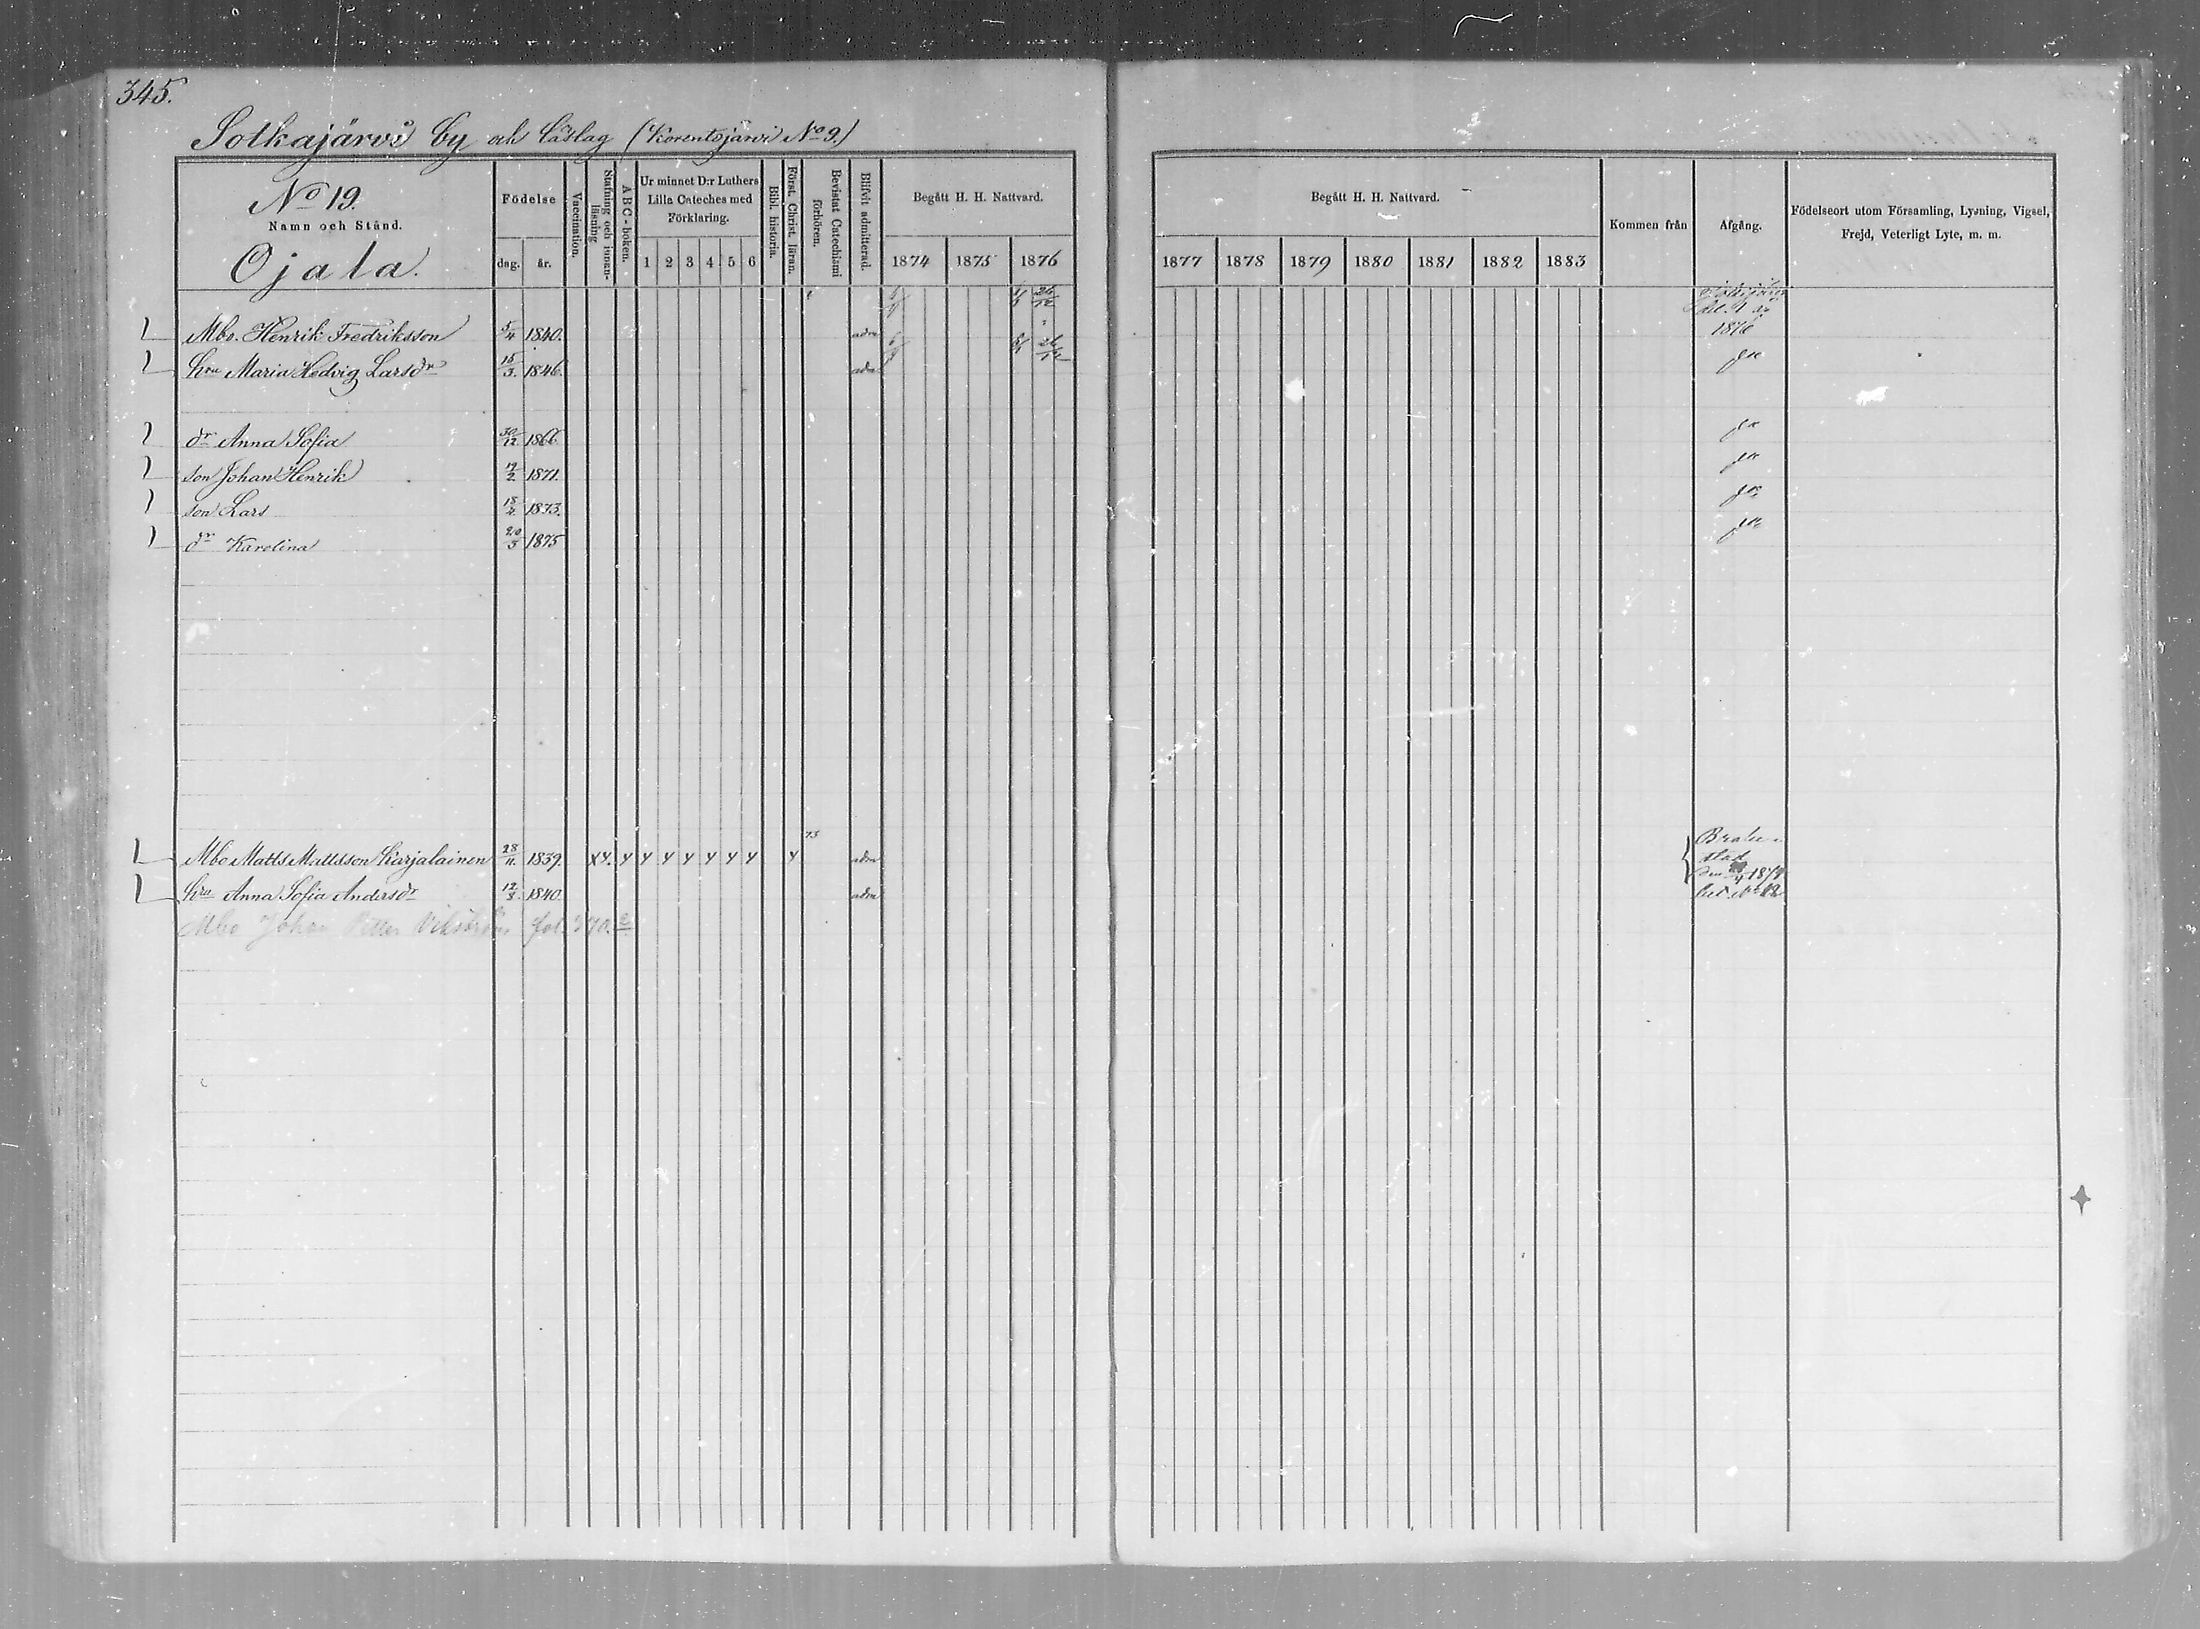 345.
Sotkajärvi by och Läslag (Korentojärvi No 9.)
No 19.
Namn och Stånd.
Ojala.
Födelse
dag. år.
Vaccination.
Stafning och innanläsning
ABC-boken.
Ur minnet D:r Luthers Lilla Cateches med Förklaring.
1 2 3 4 5 6
Bibl. historia.
Först. Christ. läran.
Bevistat Catechismi förhören.
Blifvit admitterad.
Begått H. H. Nattvard.
1874 1875 1876
Begått H. H. Nattvard.
1877 1878 1879 1880 1881 1882 1883
Kommen från
Afgång.
Födelseort utom Församling, Lysning, Vigsel, Frejd, Veterligt Lyte, m. m.
Mbo. Henrik Fredriksson 5/4 1840. adm 26/12 1876
hru Maria Hedvig Larsdr 15/3. 1846. adm
dr Anna Sofia 30/12 1866
son Johan Henrik 17/2 1871.
son Lars 1873.
dr Karolina 20/3 1875
Mbo Matts Mattsson Karjalainen 28/11. 1839. adm Brahestad
hru Anna Sofia Andersdr 12/3 1840. adm
Mbo Johan Petter